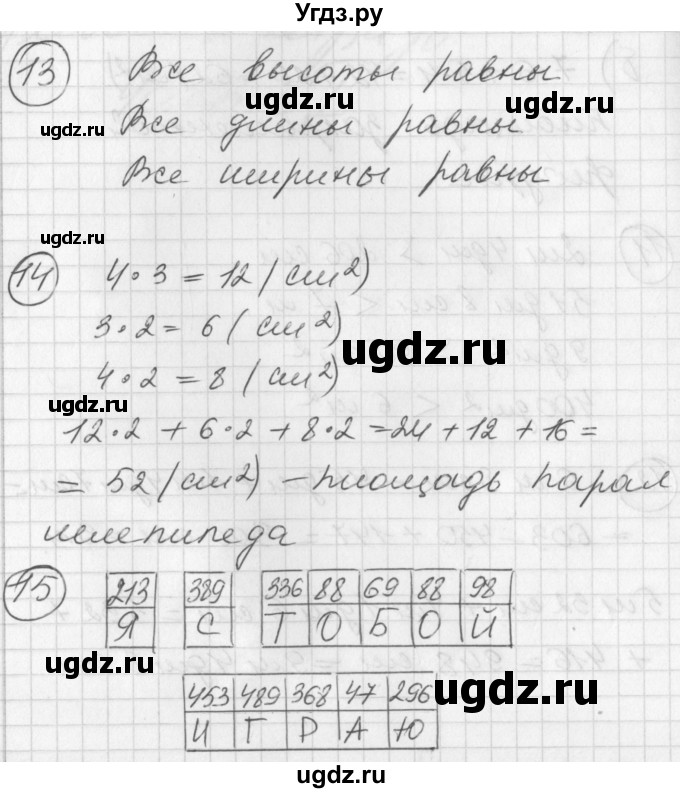 Угдз.ру
13 Все высоты равны
ugdz.ru ugdz.ru
ugdz.ru Все длины равны
ugdz.ru
Все ширины равны
ugdz.ru
14 4·3 = 12 (см²)
3·2 = 6 (см²)
ugdz.ru
4·2 = 8 (см²)
ugdz.ru
12·2 + 6·2 + 8·2 = 24 + 12 + 16 =
= 52 (см²) – площадь парал
ugdz.ru
лелепипеда
15 213 389 336 88 69 88 98
Я С Т О Б О Й
ugdz.ru ugdz.ru
453 489 368 47 296
ugdz.ru
И Г Р А Ю
ugdz.ru
ugdz.ru